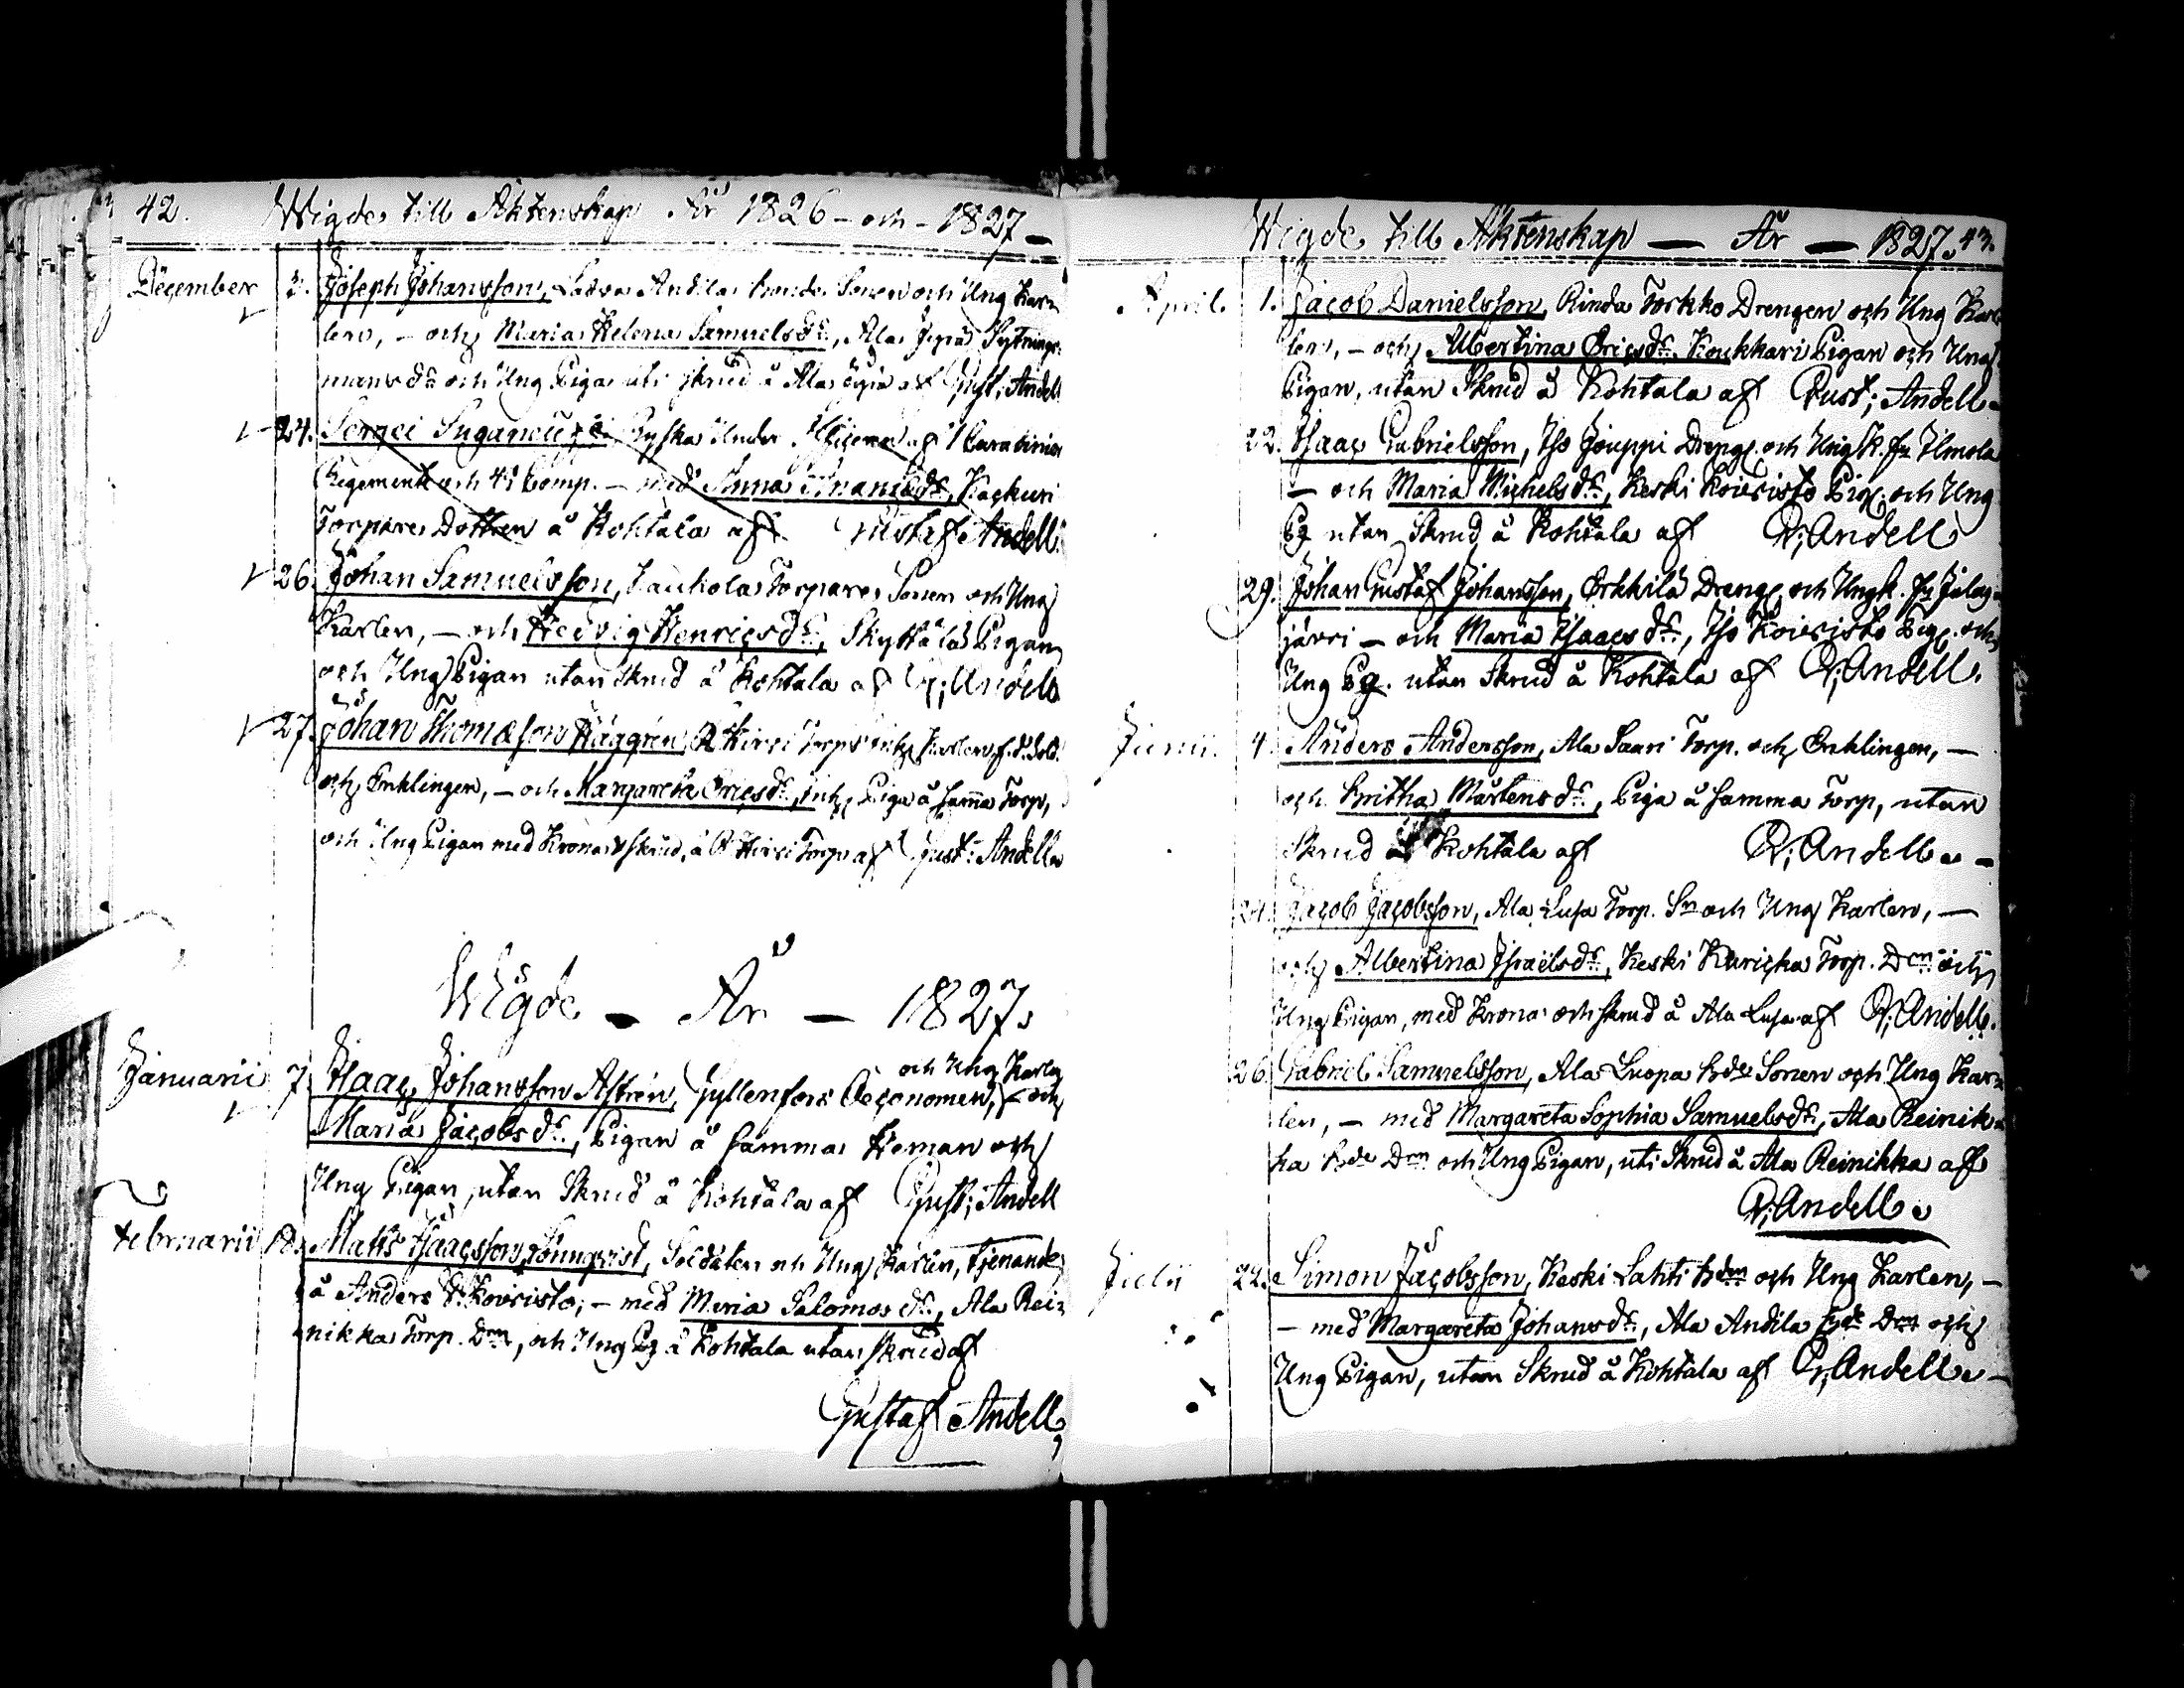 42. Wigde till Äktenskap År 1826 - och - 1827
December 3. Joseph Johansson, Latva Andila bonde Sonen och Ung Kar=
len, - och Maria Helena Samuelsd:r, Ala Jyrä Sytnings
mans d:r och Ung Piga uti skrud å Ala Jyrä af Gust; Andell
24. Sergei Ryska Under af Carabinier
Regemente och 4:de Comp. - med Anna Kackuri
Torpare Dottren å Kohtala af Gustaf Andell.
26. Johan Samuelsson, Laukola Torpare Sonen och Ung
Karlen, - och Hedvig Henricsd:r, Skyttälä Pigan
och Ung Pigan utan Skrud å Kohtala af G; Andell
27. Johan Thomasson Häggrén, Hirvi Torps inh. Karlen f.d. Sold.
och Enklingen, - och Margareta Ericsd:r, inh. Piga å samma Torp,
och Ung Pigan med Krona skrud, å Hirvi Torp af Gust: Andell
Wigde - År - 1827.
Januarii 7. Isaac Johansson Astrén, Gyllenfors Oeconomen, och Ung Karlen - och
Maria Jacobsd:r, Pigan å samma Heman och
Ung Pigan, utan Skrud å Kohtala af Gust; Andell
Februarii 18. Matts Isaacsson Lönnqvist, Soldaten och Ung Karlen, tjenande
å Anders Koivisto; - med Maria Salomos d:r, Ala Rei=
nikka Torp. D:en, och Ung Pg å Kohtala utan skrud af
Gustaf Andell
Wigde till Äktenskap - År - 1827. 43.
April. 1. Jacob Danielsson, Rinda Torkko Drengen och Ung Kar
len, - och Albertina Ericsd:r Koukkari Pigan och Ung
Pigan, utan Skrud å Kohtala af Gust; Andell
22. Isaac Gabrielsson, Iso Jouppi Dreng. och Ung K. fr Ilmola
- och Maria Michelsd:r, Keski Koivisto Pig. och Ung
Pg utan Skrud å Kohtala af G; Andell
29. Johan Gustaf Johansson, Erkkilä Dreng. och Ungk. fr Jalas=
järvi - och Maria Isaacsd:r, Iso Koivisto Pig. och
Ung Pg. utan Skrud å Kohtala af G; Andell.
Junii. 4. Anders Andersson, Ala Saari Torp. och Enklingen, -
och Britha Mårtensd:r, Piga å samma Torp, utan
Skrud å Kohtala af G; Andell. -
24. Jacob Jacobsson, Ala Lusa Torp. Sn och Ung Karlen, -
och Albertina Israelsd:r, Keski Kuricka Torp. D:en och
Ung Pigan, med Krona och skrud å Ala Lusa af G; Andell.
26. Gabriel Samuelsson, Ala Luopa bde Sonen och Ung Kar=
len, - med Margareta Sophia Samuelsd:r, Ala Reinik=
ka bde D:en och Ung Pigan, uti Skrud å Ala Reinikka af
G; Andell.
Julii 22. Simon Jacobsson, Keski Lahti bden och Ung Karlen, -
- med Margareta Johansd:r, Ala Andila bde D:en och
Ung Pigan, utan Skrud å Kohtala af G; Andell. -